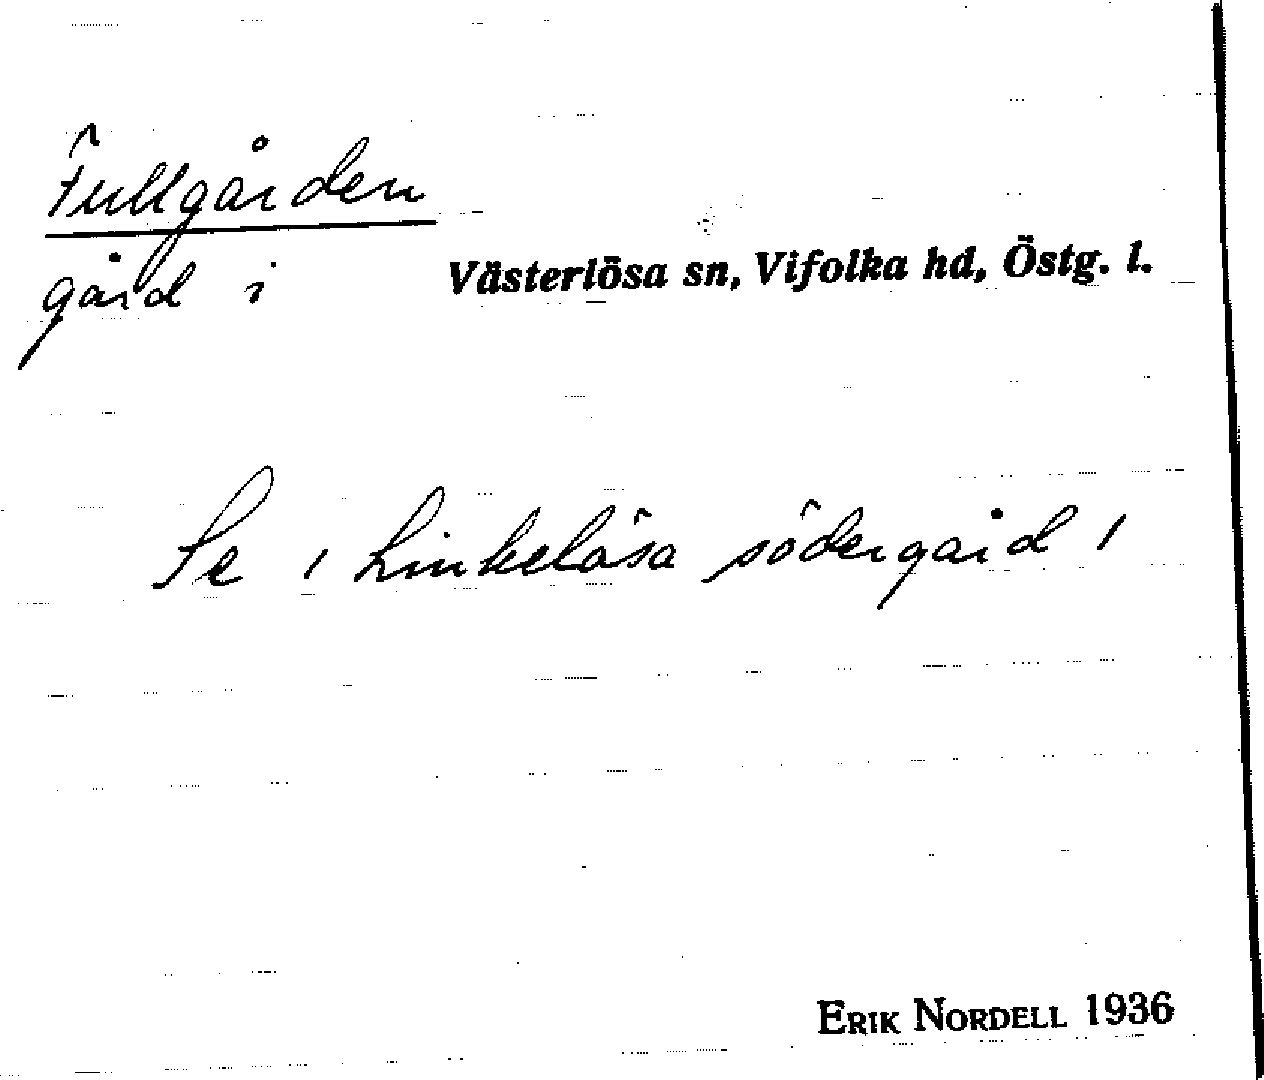 Fullgården
gård i Västerlösa sn, Vifolka hd, Östg. l.
Se / Linkelösa södergård /
ERIK NORDELL 1936